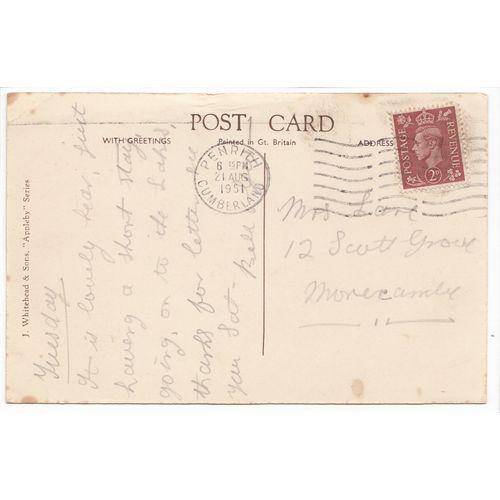 POST CARD
WITH GREETINGS
Printed in Gt. Britain
ADDRESS
J. Whitehead & Sons, "Appleby" Series
PENRITH
6 15PM
21 AUG
1951
CUMBERLAND
POSTAGE
REVENUE
2D
Tuesday
It is lovely here, just
having a short stay
going on to the Lakes,
thanks for letter, see
you Sat - Bell
Mrs
12 Scott Grove
Morecambe